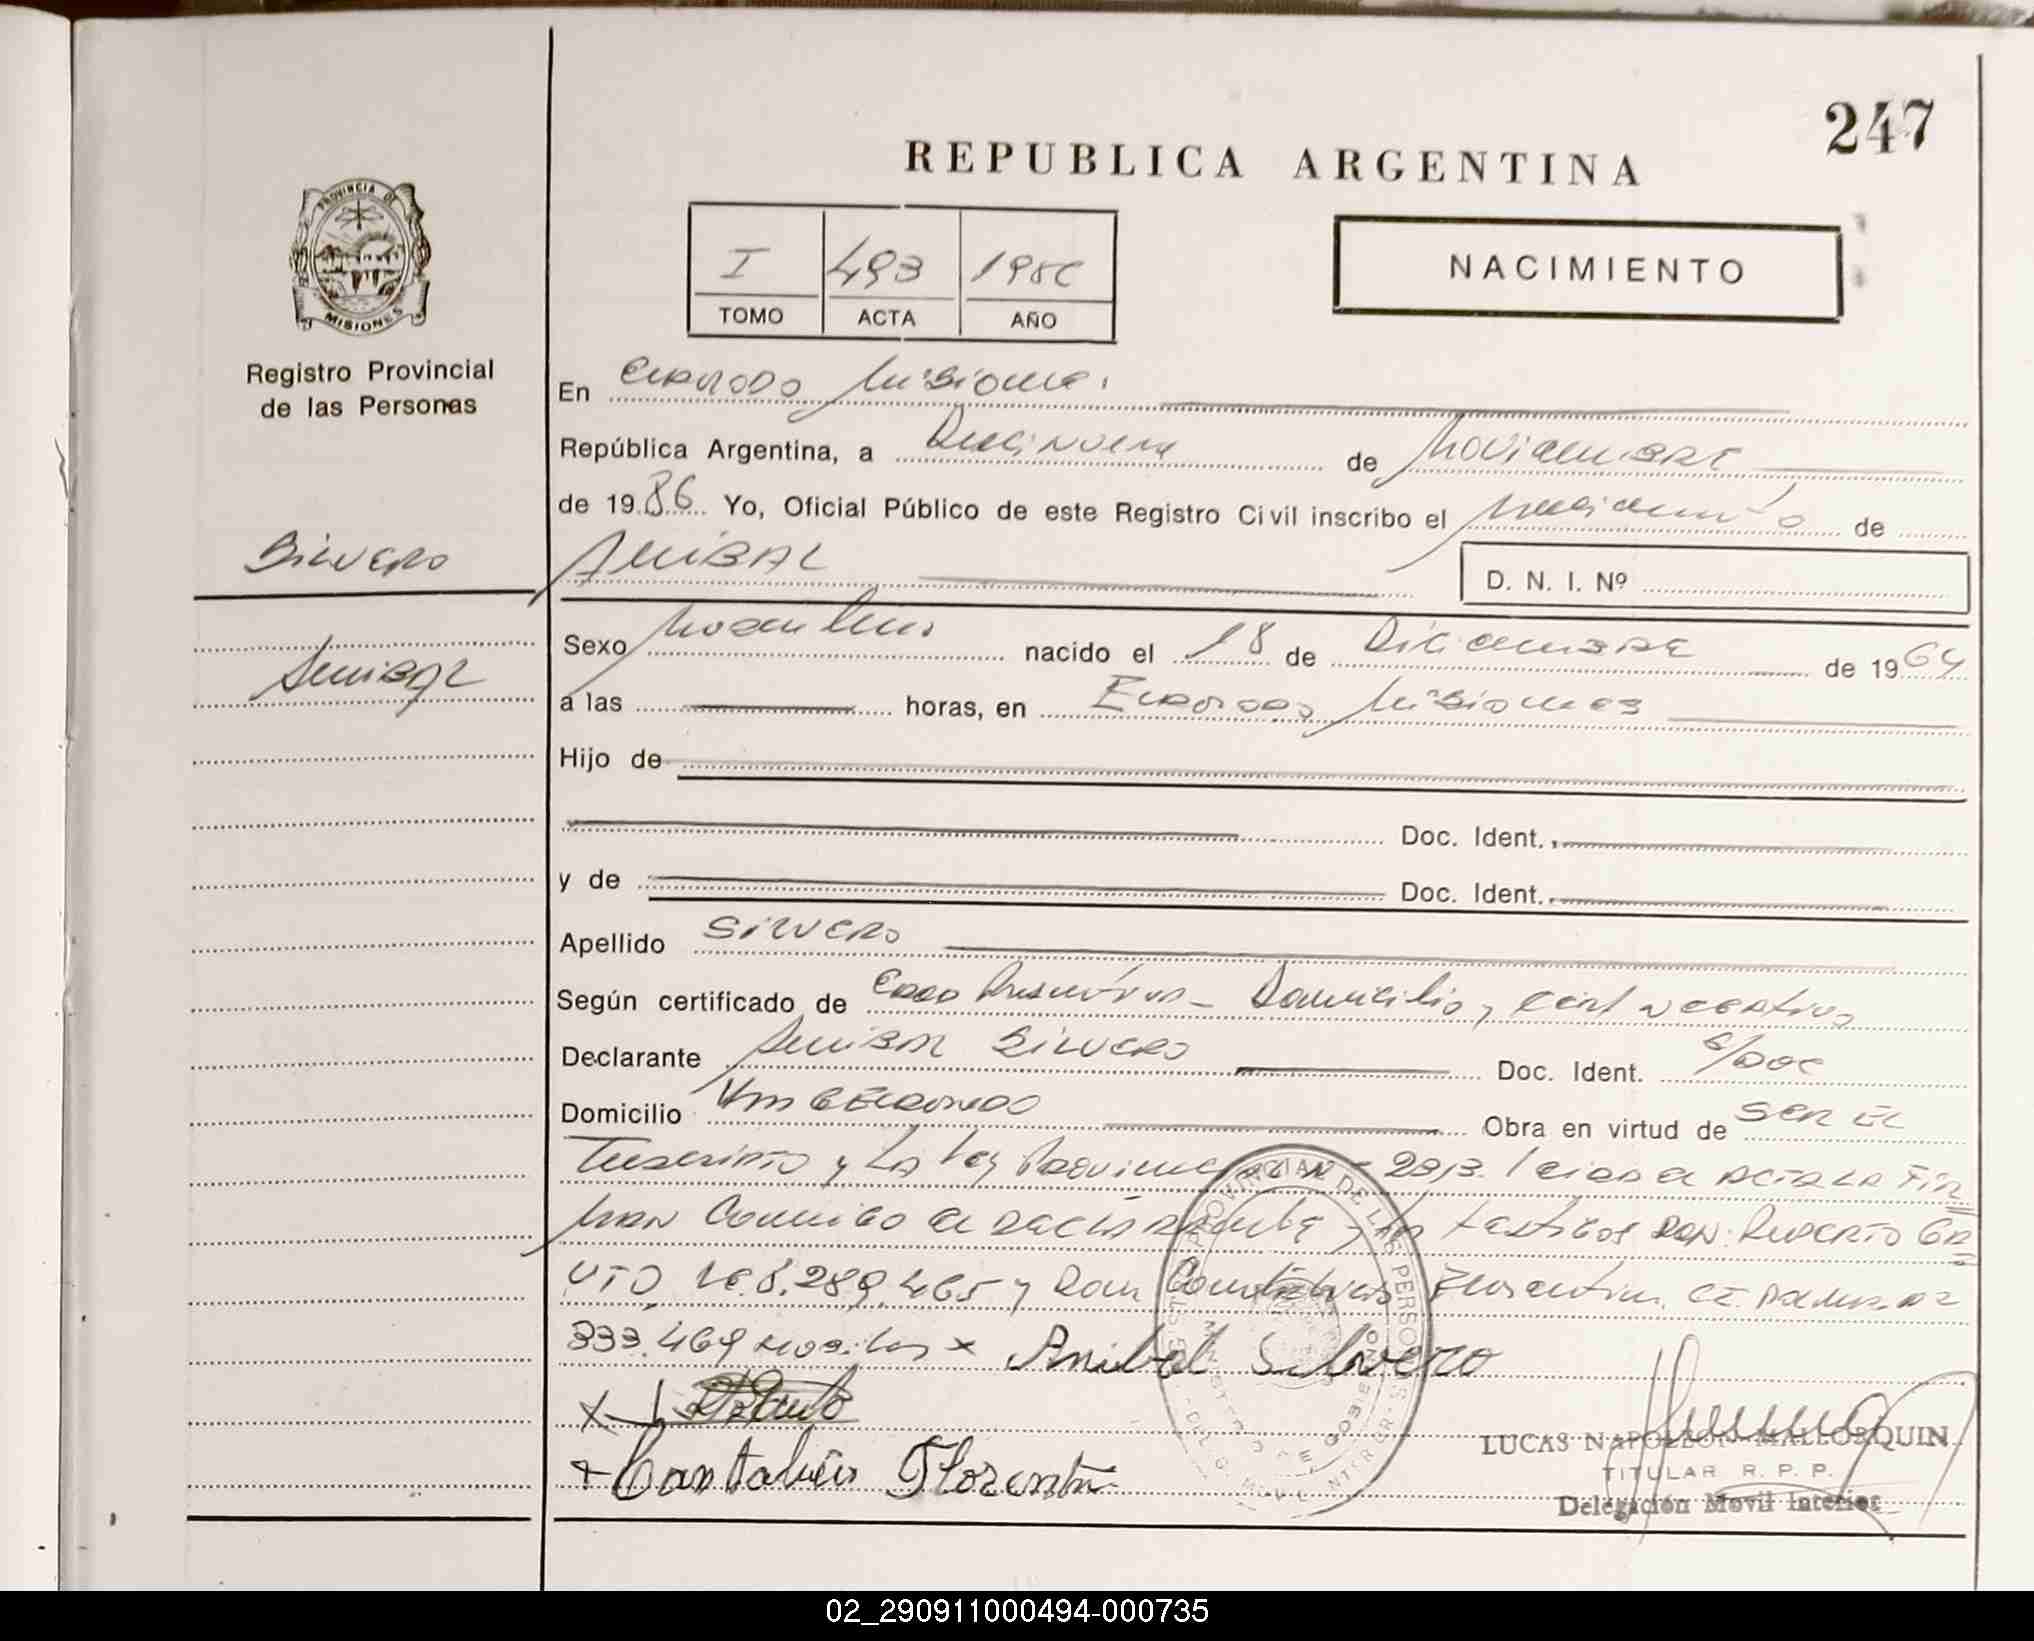 247
REPUBLICA ARGENTINA
PROVINCIA DE
MISIONES
I 493 1986
TOMO ACTA AÑO
NACIMIENTO
Registro Provincial
de las Personas
En Eldorado Misiones
República Argentina, a Diecinueve de Noviembre
de 1986 Yo, Oficial Público de este Registro Civil inscribo el Nacimiento de
Silvero
Anibal
D. N. I. Nº
Anibal
Sexo Masculino nacido el 18 de Diciembre de 1964
a las horas, en Eldorado, Misiones
Hijo de
Doc. Ident.
y de Doc. Ident.
Apellido Silvero
Según certificado de Domicilio, cert negativo
Declarante Anibal Silvero Doc. Ident. S/Doc
Domicilio Obra en virtud de ser el
Inscripto y la Ley 2813. leida el acta la fir
man conmigo el declarante y los testigos Don: Ruperto
8.289.465 y Don Florentin
333.469 x Anibal Silvero
x
+ Florentin
PROVINCIAL DE LAS PERSONAS
LUCAS NAPOLEON MALLORQUIN
TITULAR R. P. P.
Delegación Movil Interior
02_290911000494-000735